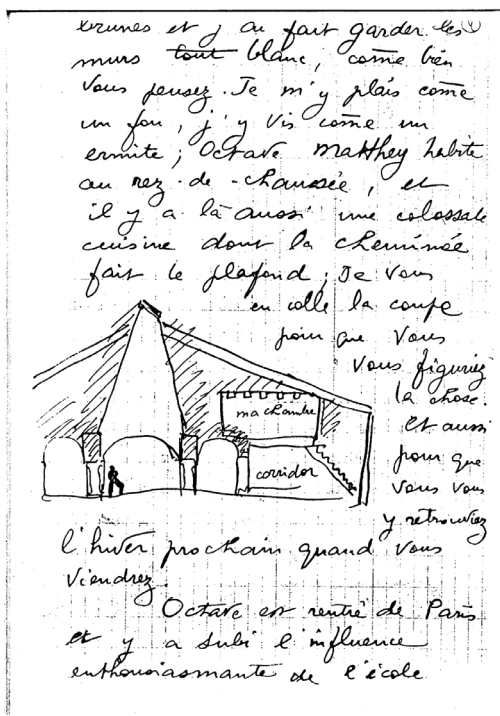 brunes et j'ai fait garder les 4
murs tout blanc, come bien
vous pensez. Je m'y plais come
un fou, j'y vis come un
ermite; Octave Matthey habite
au rez-de-chaussée, et
il y a là aussi une colossale
cuisine dont la cheminée
fait le plafond; Je vous
en colle la coupe
pour que vous
vous figuriez
la chose.
Et aussi
pour que
vous vous
y retrouviez
l'hiver prochain quand vous
viendrez.
Octave est rentré de Paris
et y a subi l'influence
enthousiasmante de l'école
ma chambre
corridor